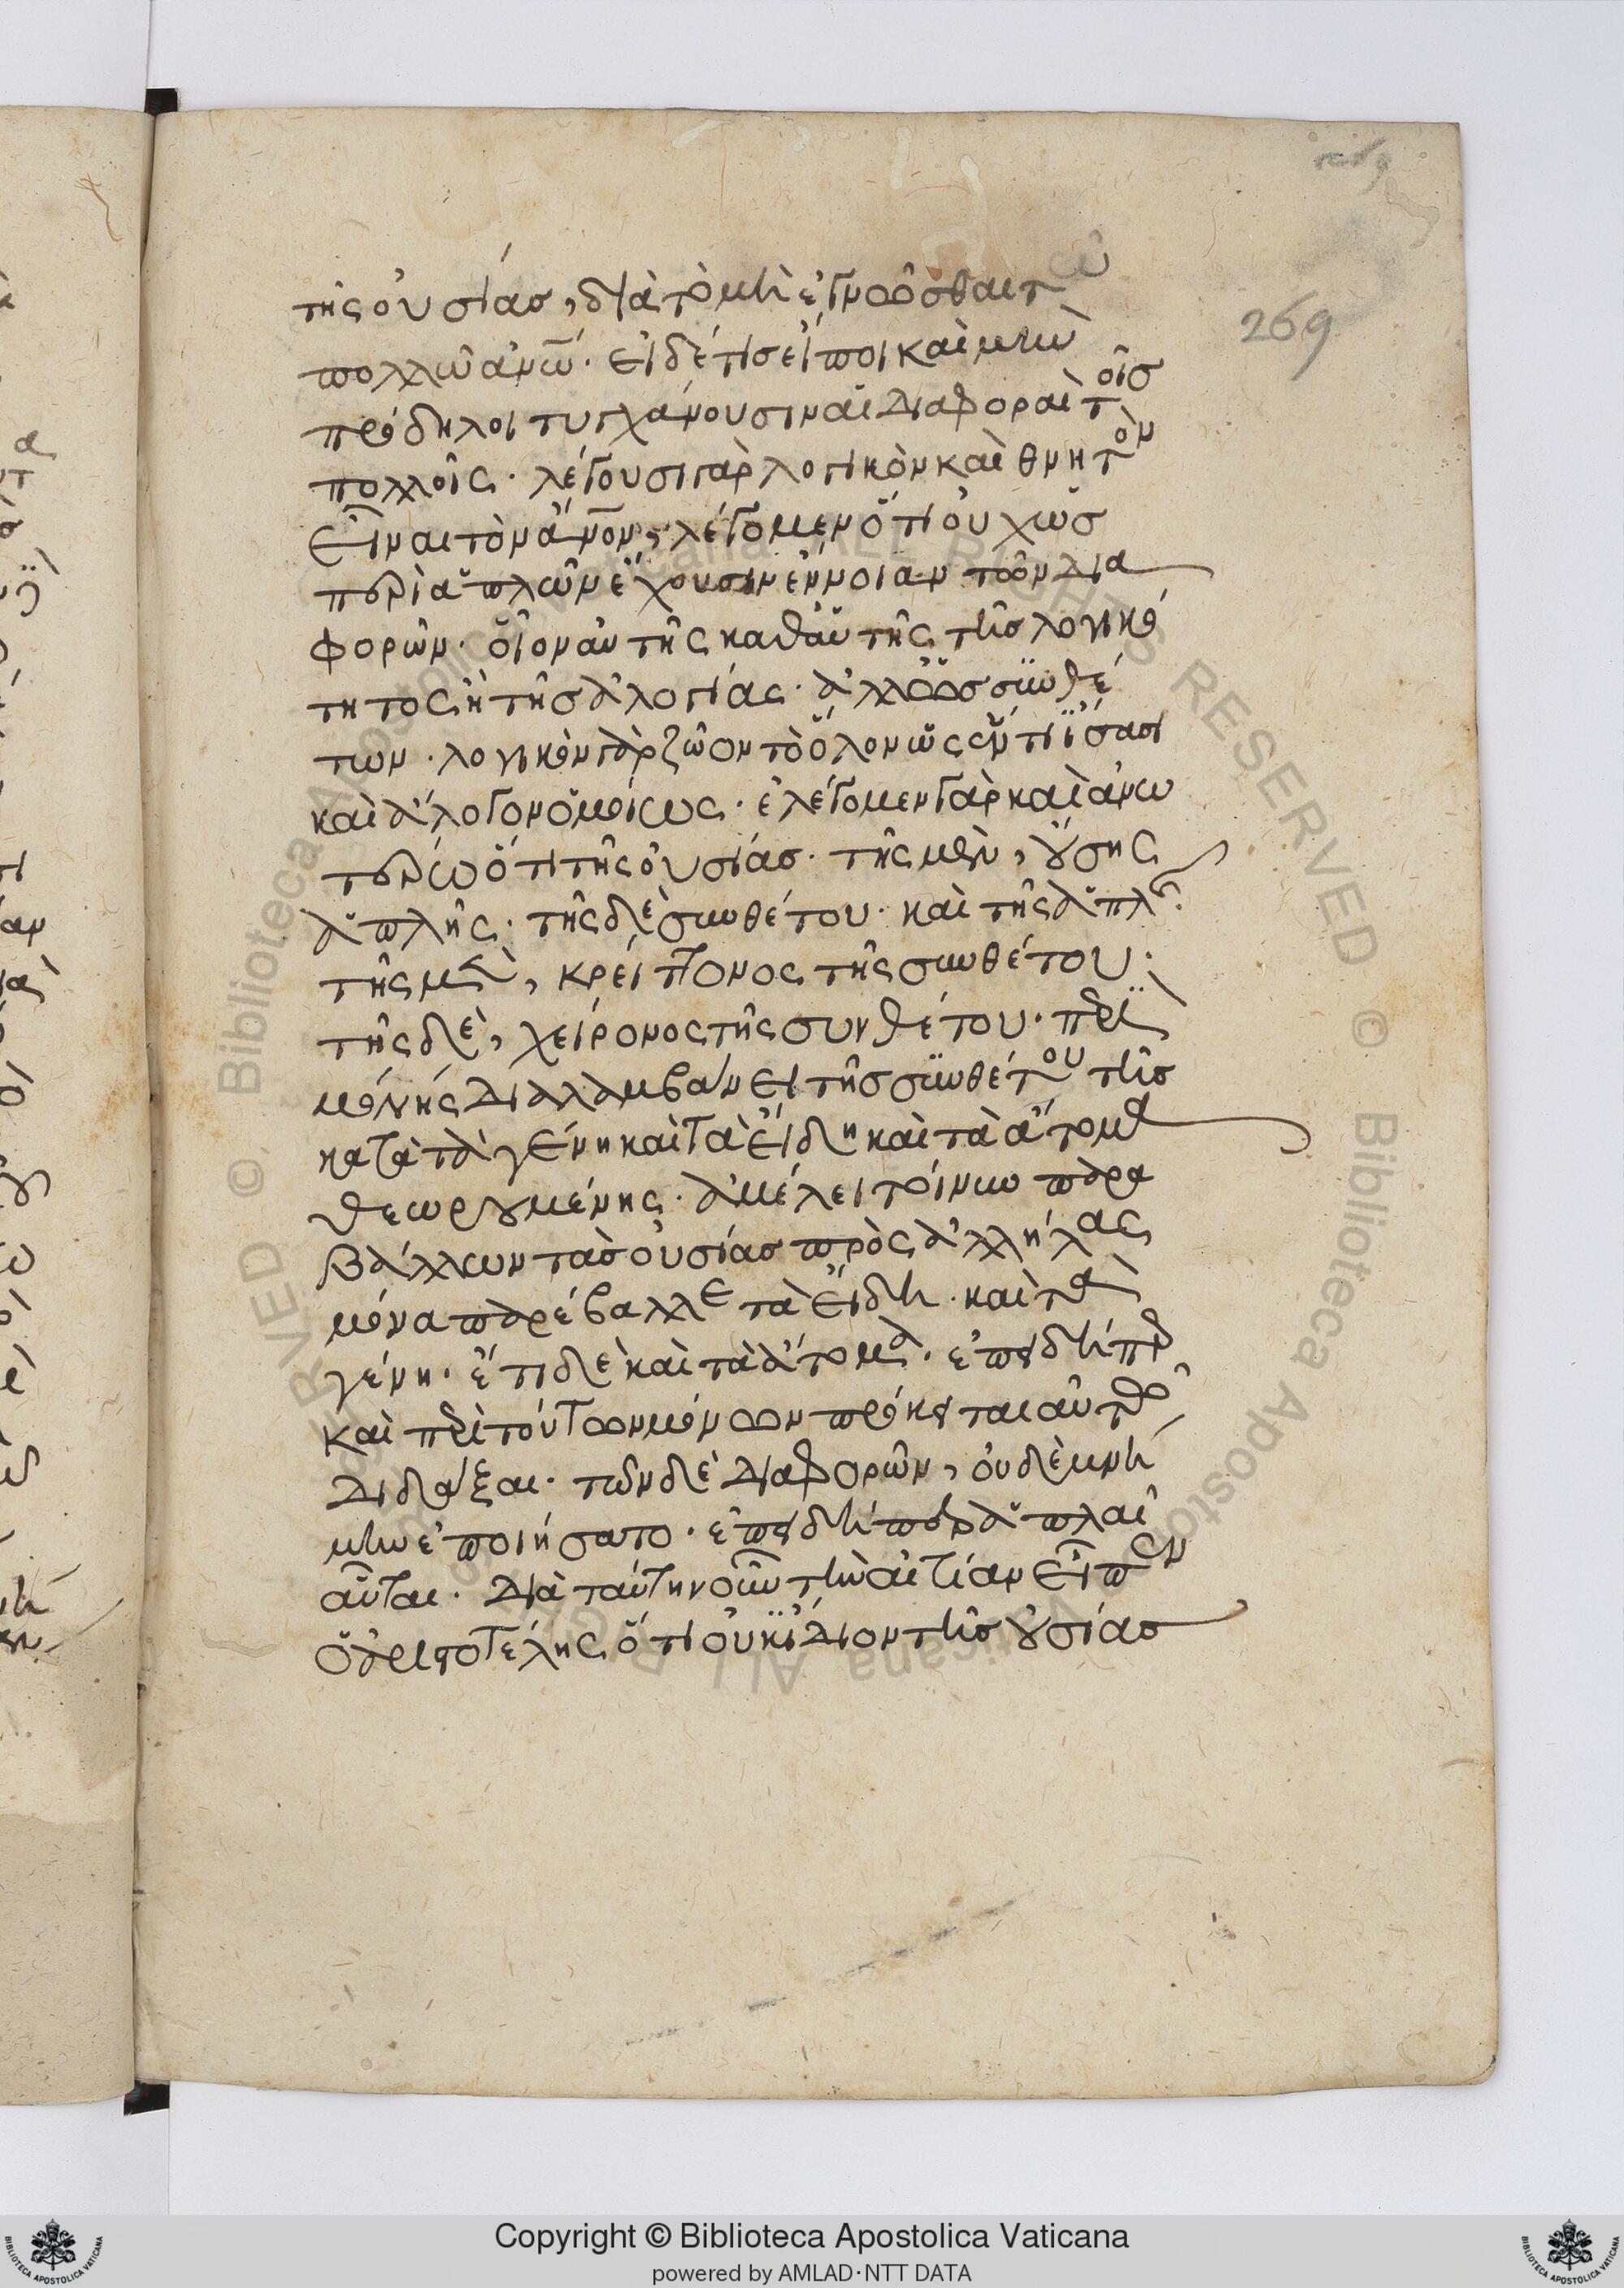 269
τῆς οὐσίας, διὰ τὸ μὴ ἐγνῶσθαι τῶ
πολλῶ ἀνω̄. εἰ δέ τις εἴποι καὶ μὴν
πρόδηλοι τυγχάνουσιν αἱ διαφοραὶ τοῖς
πολλοῖς. λέγουσι γὰρ λογικὸν καὶ θνητὸν
εἶναι τὸν ἄνον, λέγομεν ὅτι οὐχ ὡς
περὶ ἁπλῶν ἔχουσιν ἔννοιαν τῶν δια
φορῶν. οἷον αὐτῆς καθαὑτῆς τῆς λογικό
τητος ἢ τῆς ἀλογίας. ἀλλ' ὡς συνθέ
των. λογικὸν γὰρ ζῶον τὸ ὅλον ὡς ἕν τι ἴσασι
καὶ ἄλογον ὁμοίως. ἐλέγομεν γὰρ καὶ ἀνω
τέρω ὅτι τῆς οὐσίας. τῆς μὲν, οὔσης
ἁπλῆς. τῆς δὲ συνθέτου. καὶ τῆς ἁπλῆς
τῆς μὲν, κρείττονος τῆς συνθέτου.
τῆς δὲ, χείρονος τῆς συνθέτου. περὶ
μόνης διαλαμβάνει τῆς συνθέτου τῆς
κατὰ τὰ γένη καὶ τὰ εἴδη καὶ τὰ ἄτομα
θεωρουμένης. ἀμέλει τοίνυν παρα
βάλλων τὰς οὐσίας πρὸς ἀλλήλας
μόνα παρέβαλλε τὰ εἴδη. καὶ τὰ
γένη. ἔτι δὲ καὶ τὰ ἄτομα. ἐπειδήπερ
καὶ περὶ τούτων μόνων πρόκειται αὐτῶ
διδάξαι. τῶν δὲ διαφορῶν, οὐδὲ μνή
μην ἐποιήσατο. ἐπειδήπερ ἁπλαῖ
αὗται. διὰ ταύτην οὖν τὴν αἰτίαν εἶπεν
ὁ ἀριστοτέλης ὅτι οὐκ ἴδιον τῆς οὐσίας
Copyright © Biblioteca Apostolica Vaticana
powered by AMLAD·NTT DATA